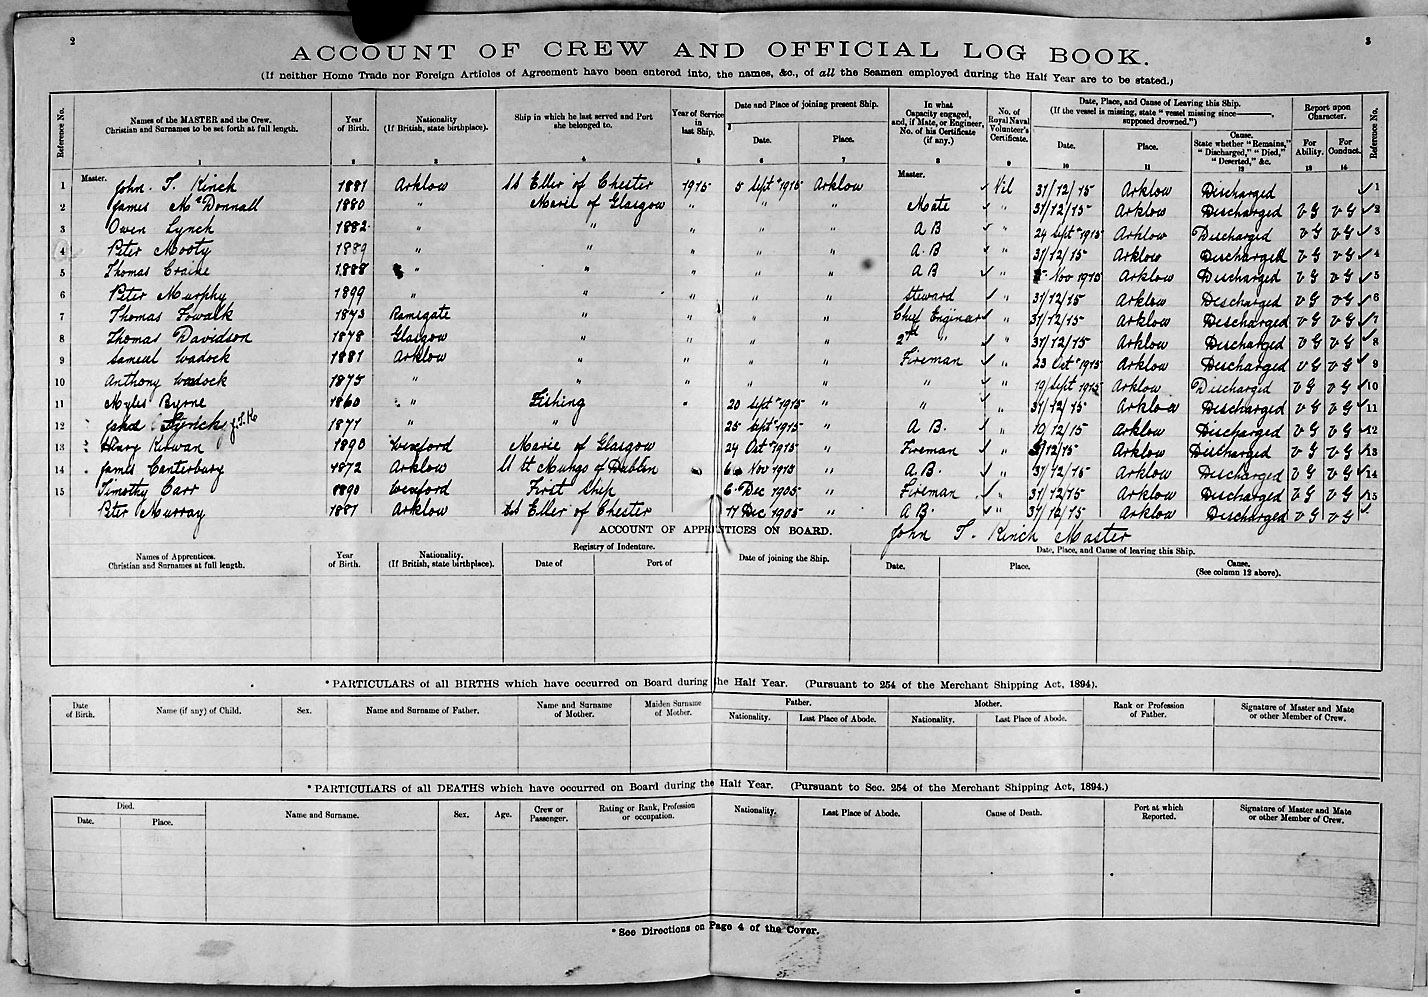 2
3
ACCOUNT OF CREW AND OFFICIAL LOG BOOK.
(If neither Home Trade nor Foreign Articles of Agreement have been entered into, the names, &c., of all the Seamen employed during the Half Year are to be stated.)
Reference No. | Names of the MASTER and the Crew. Christian and Surnames to be set forth at full length. | Year of Birth. | Nationality (If British, state birthplace). | Ship in which he last served and Port she belonged to. | Year of Service in last Ship. | Date and Place of joining present Ship. Date. Place. | In what Capacity engaged, and, if Mate, or Engineer, No. of his Certificate (if any.) | No. of Royal Naval Volunteer's Certificate. | Date, Place, and Cause of Leaving this Ship. (If the vessel is missing, state "vessel missing since———, supposed drowned.") Date. Place. Cause. State whether "Remains," "Discharged," "Died," "Deserted," &c. | Report upon Character. For Ability. For Conduct. | Reference No.
1 2 3 4 5 6 7 8 9 10 11 12 13 14
1 Master. John. T. Kinch 1881 Arklow SS Eller of Chester 1915 5 Sept 1915 Arklow Master. Nil 31/12/15 Arklow Discharged 1
2 James McDonnall 1880 " Marie of Glasgow " " " Mate " 31/12/15 Arklow Discharged VG VG 2
3 Owen Lynch 1882 " " " " " A B " 24 Sept 1915 Arklow Discharged VG VG 3
4 Peter Mooty 1889 " " " " " A.B " 31/12/15 Arklow Discharged VG VG 4
5 Thomas Craine 1888 " " " " " A B " Nov 1915 Arklow Discharged VG VG 5
6 Peter Murphy 1899 " " " " " Steward " 31/12/15 Arklow Discharged VG VG 6
7 Thomas Fowalk 1843 Ramsgate " " " " Chief Engineer " 31/12/15 Arklow Discharged VG VG 7
8 Thomas Davidson 1878 Glasgow " " " " 2nd " " 31/12/15 Arklow Discharged VG VG 8
9 Sameul Wadock 1881 Arklow " " " " Fireman " 23 Oct 1915 Arklow Discharged VG VG 9
10 Anthony Wadock 1875 " " " " " " " 19 Sept 1915 Arklow Discharged VG VG 10
11 Myles Byrne 1860 " Fishing " 20 Sept 1915 " " " 31/12/15 Arklow Discharged VG VG 11
12 J.T.K. 1871 " " 25 Sept 1915 " A B. " 10/12/15 Arklow Discharged VG VG 12
13 Henry Kirwan 1890 Wexford Marie of Glasgow 24 Oct 1915 " Fireman " /12/15 Arklow Discharged VG VG 13
14 James Canterbury 1872 Arklow SS St Mungo of Dublin 6 Nov 1915 " A.B. " 31/12/15 Arklow Discharged VG VG 14
15 Timothy Carr 1890 Wexford First Ship 6. Dec 1905 " Fireman " 31/12/15 Arklow Discharged VG VG 15
Peter Murray 1881 Arklow SS Eller of Chester 17 Dec 1905 " A B. " 31/12/15 Arklow Discharged VG VG
ACCOUNT OF APPRENTICES ON BOARD.
John T. Kinch Master
Names of Apprentices. Christian and Surnames at full length. | Year of Birth. | Nationality. (If British, state birthplace). | Registry of Indenture. Date of Port of | Date of joining the Ship. | Date, Place, and Cause of leaving this Ship. Date. Place. Cause. (See column 12 above).
*PARTICULARS of all BIRTHS which have occurred on Board during the Half Year. (Pursuant to 254 of the Merchant Shipping Act, 1894).
Date of Birth. | Name (if any) of Child. | Sex. | Name and Surname of Father. | Name and Surname of Mother. | Maiden Surname of Mother. | Father. Nationality. Last Place of Abode. | Mother. Nationality. Last Place of Abode. | Rank or Profession of Father. | Signature of Master and Mate or other Member of Crew.
*PARTICULARS of all DEATHS which have occurred on Board during the Half Year. (Pursuant to Sec. 254 of the Merchant Shipping Act, 1894.)
Died. Date. Place. | Name and Surname. | Sex. | Age. | Crew or Passenger. | Rating or Rank, Profession or occupation. | Nationality. | Last Place of Abode. | Cause of Death. | Port at which Reported. | Signature of Master and Mate or other Member of Crew.
*See Directions on Page 4 of the Cover.